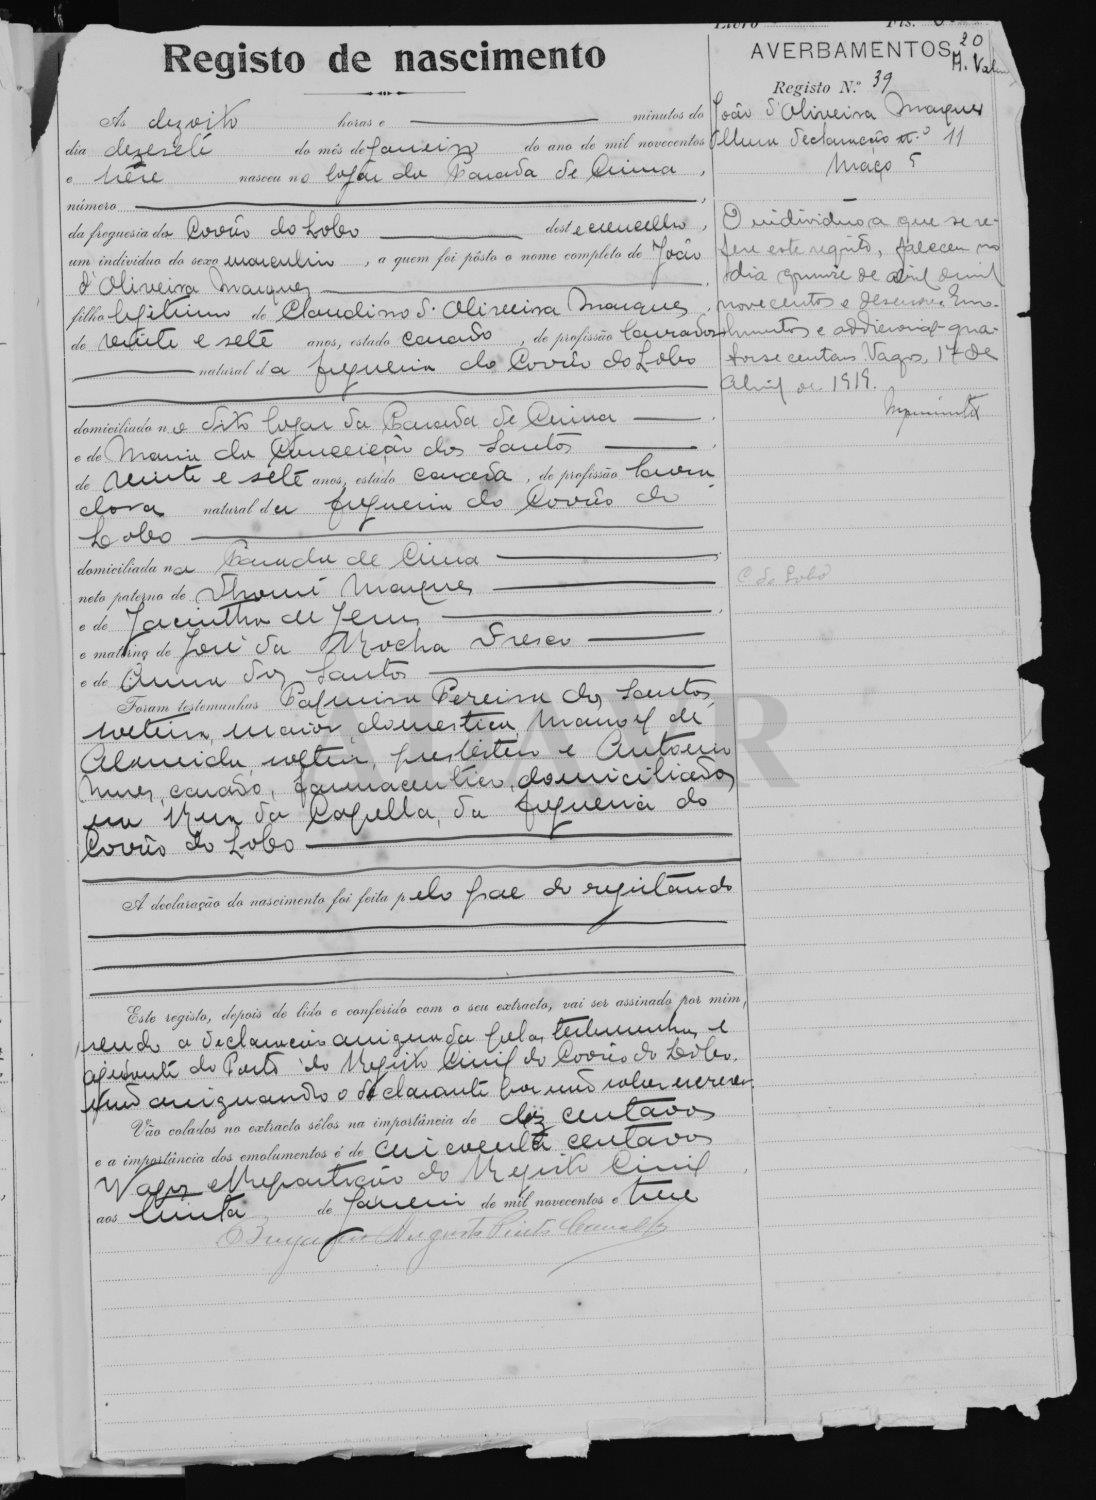 Livro Fls.
Registo de nascimento
As dezoito horas e minutos do
dia dezesete do mês de Janeiro do ano de mil novecentos
e trêse nasceu no logar da Parada de Cima,
número
da freguesia do Covão do Lobo deste concelho,
um individuo do sexo masculino, a quem foi pôsto o nome completo de João
d'Oliveira Marques
filho legitimo de Claudino d'Oliveira Marques,
de vinte e sete anos, estado casado, de profissão lavrador
natural da freguesia do Covão do Lobo
domiciliado no dito logar da Parada de Cima
e de Maria da Conceição dos Santos
de vinte e sete anos, estado casada, de profissão lavra
dora natural da freguesia do Covão do
Lobo
domiciliada na Parada de Cima
neto paterno de Thomé Marques
e de Jacintha de Jesus
e materno de José da Rocha Fresco
e de Anna dos Santos
Foram testemunhas Pereira dos Santos,
solteira, maior, domestica, Manoel de
Almeida, solteiro, presbitero e Antonio
Nunes, casado, farmaceutico, domiciliados
na Rua da Capella, da freguesia do
Covão do Lobo
A declaração do nascimento foi feita pelo pae do registando
Este registo, depois de lido e conferido com o seu extracto, vai ser assinado por mim,
sendo a declaração assignada pelas testemunhas e
ajudante do Posto do Registo Civil do Covão do Lobo,
não assignando o declarante por não saber escrever
Vão colados no extracto sêlos na importância de dez centavos
e a importância dos emolumentos é de cincoenta centavos
Vagos e Repartição do Registo Civil
aos trinta de Janeiro de mil novecentos e trese
Augusto Pinto
AVERBAMENTOS
20
Registo N.º 39
João d'Oliveira Marques
declaração n.º 11
Maço 5
O individuo a que se re-
fere este registo, faleceu no
dia quinse de abril de mil
novecentos e desenove. Emo-
lumentos e addicionaes qua-
torse centavos. Vagos, 17 de
Abril de 1919.
C do Lobo